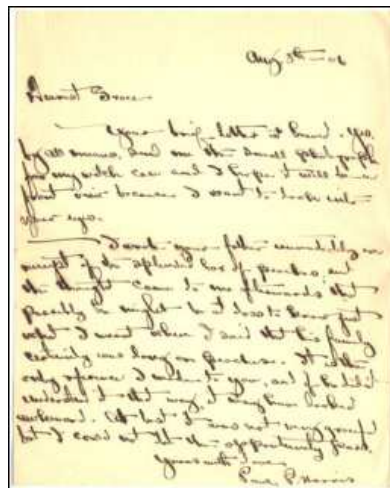 Aug 5th - 06
Dearest Grace
Your brief letter at hand. Yes,
by all means, send me the small photograph
for my watch case and I hope it will be a
front view because I want to look into
your eyes.
I wrote your father immediately on
receipt of the splendid box of peaches, and
the thought came to me afterwards that
possibly he might be at loss to know just
what I meant when I said that his family
certainly was long on peaches. It was the
only reference I made to you, and if he didn't
understand it that way, it may have looked
awkward. At best I was not very graceful
but I could not let the opportunity pass.
Yours with love
Paul P. Harris